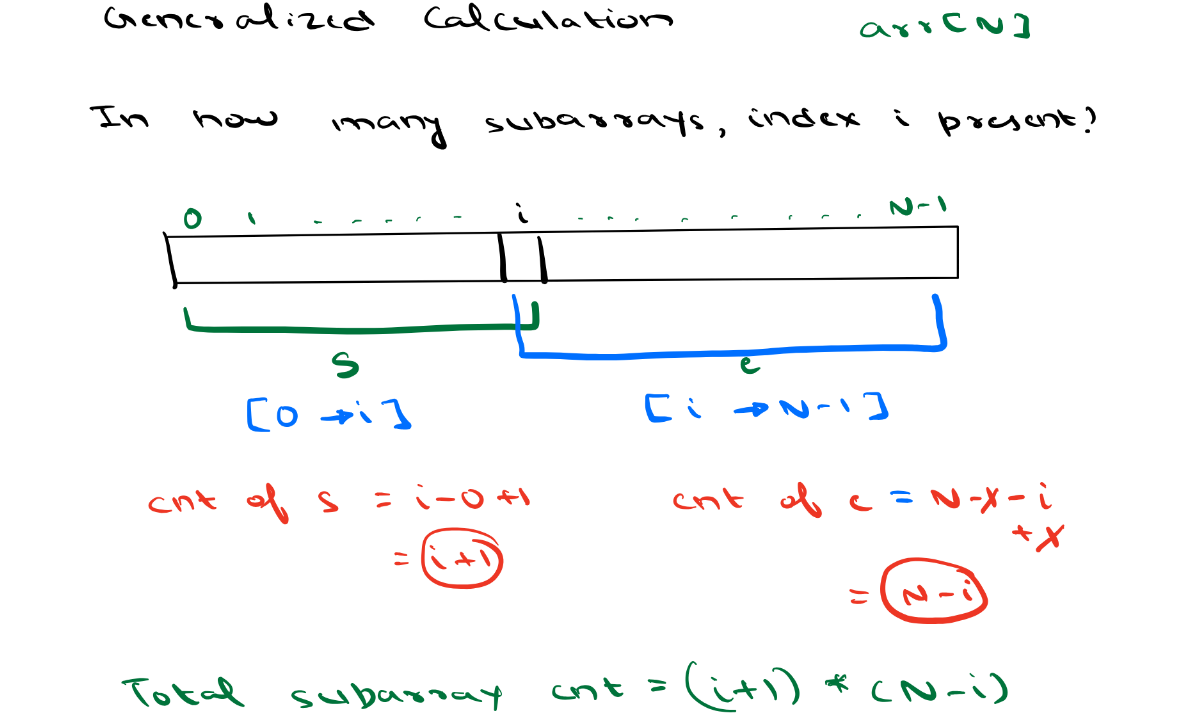 Generalized Calculation arr[N]
In how many subarrays, index i present?
0 1 . . . . . . i . . . . . . . N-1
s e
[0 → i] [i → N-1]
cnt of s = i-0+1 cnt of e = N-1-i
+1
= i+1
= N-i
Total subarray cnt = (i+1) * (N-i)